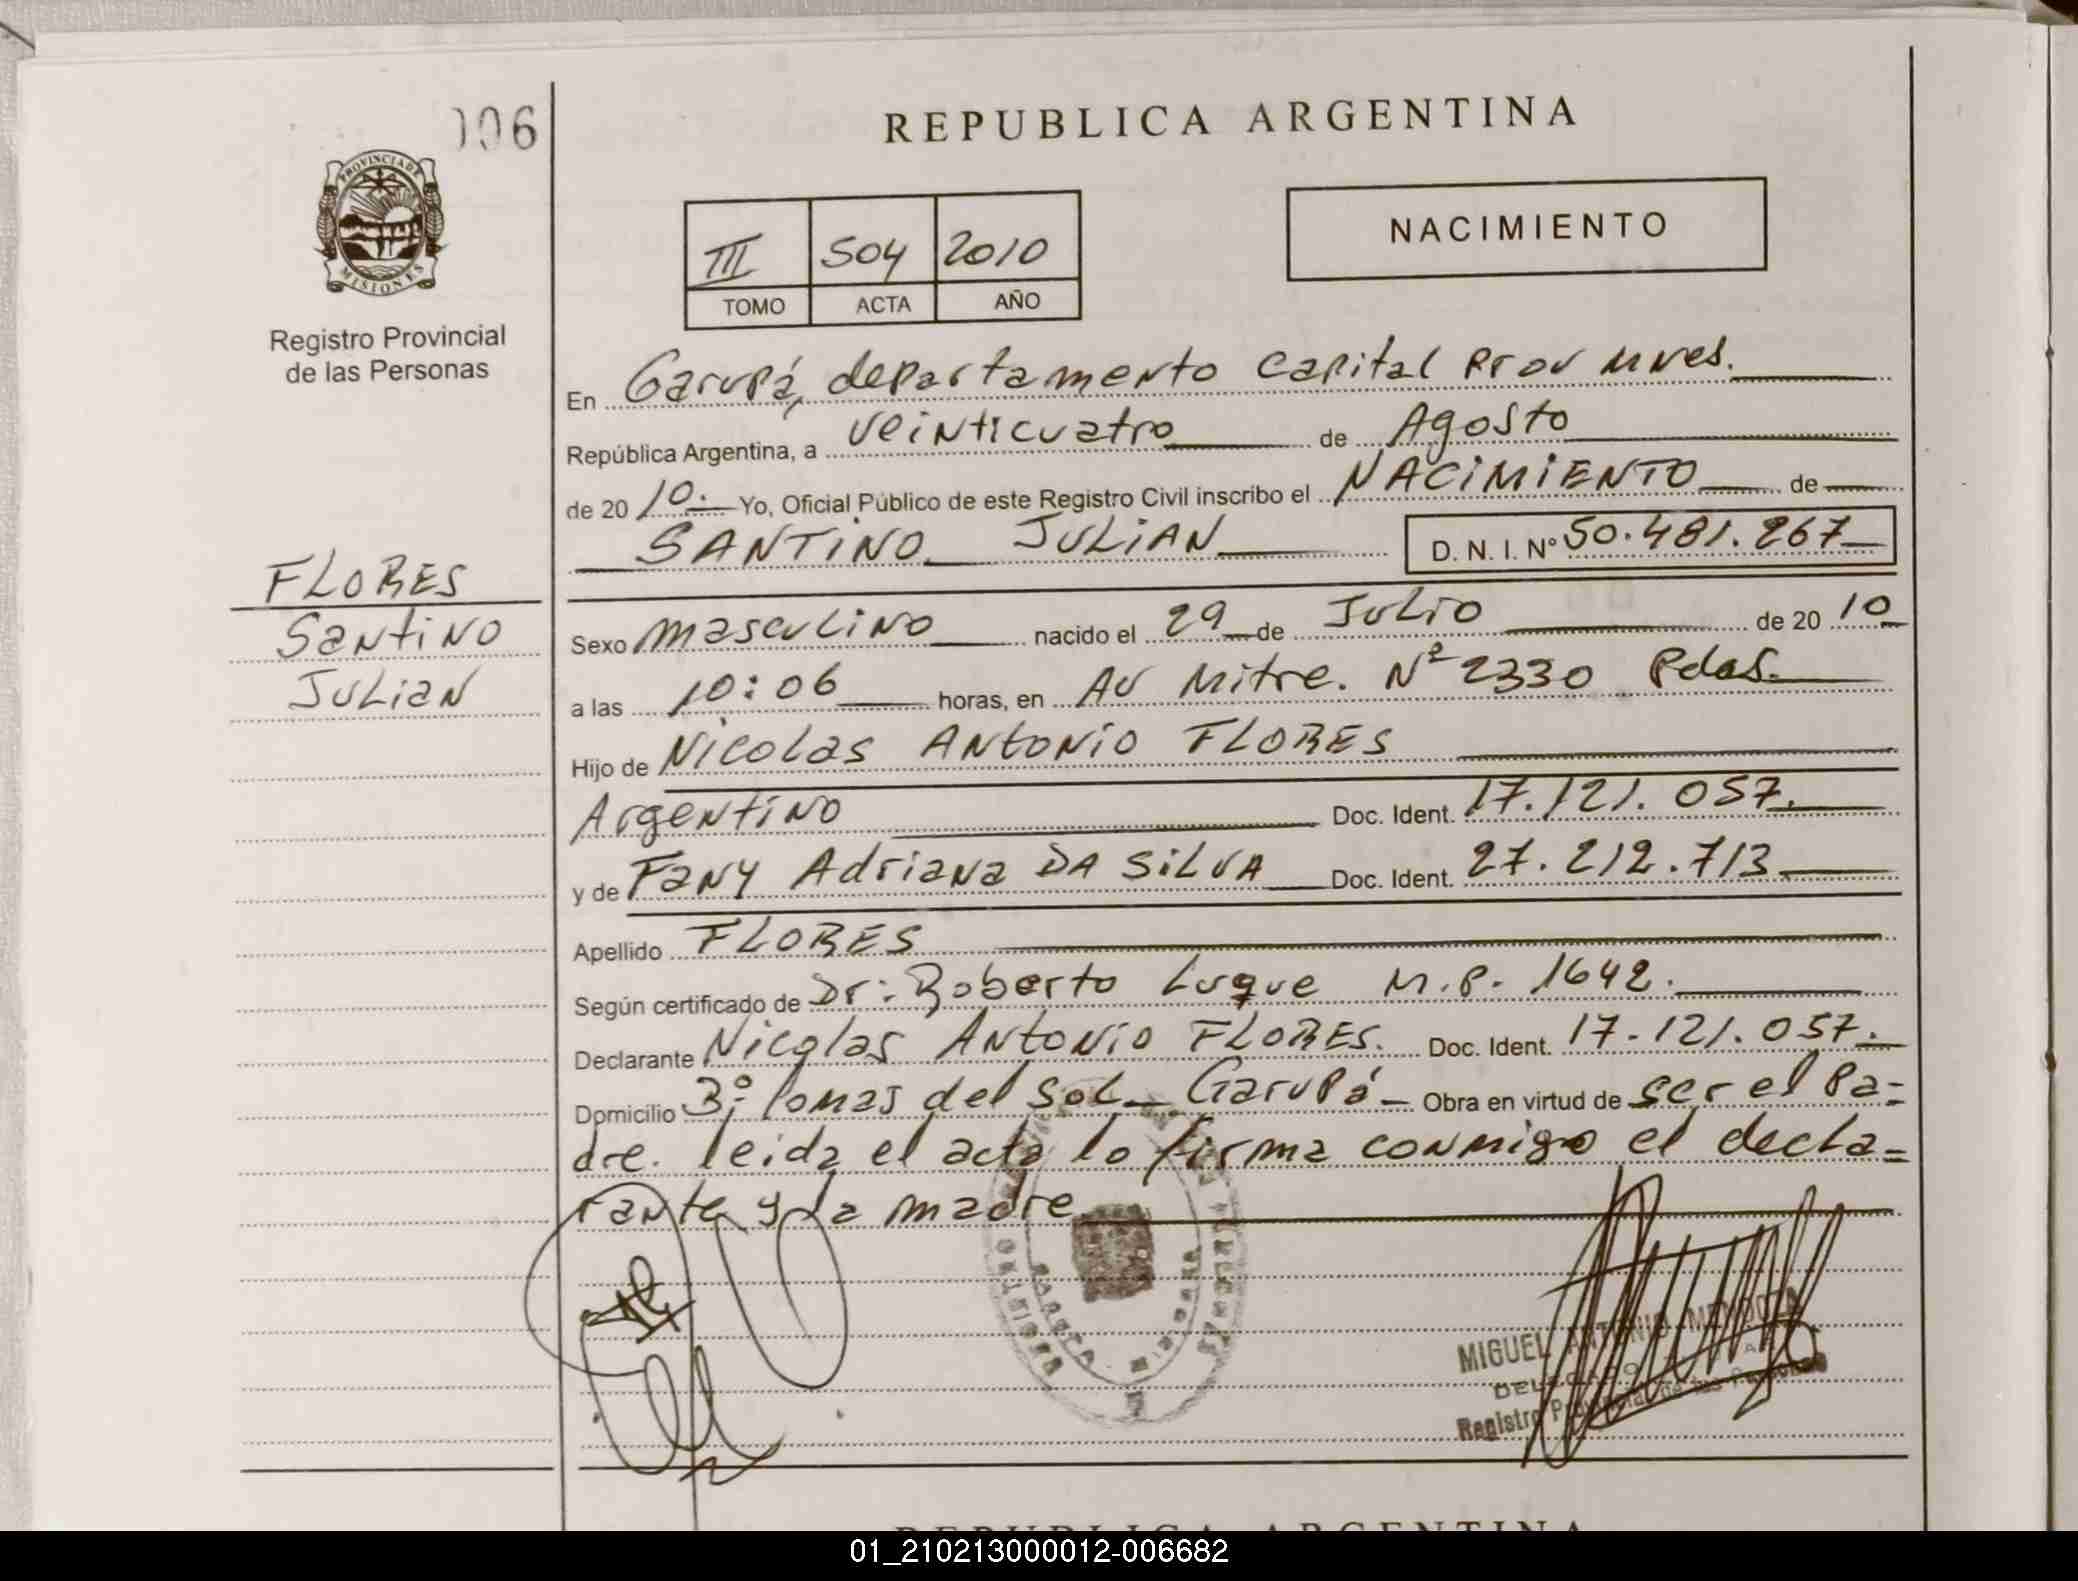 106
REPUBLICA ARGENTINA
PROVINCIA DE
MISIONES
Registro Provincial
de las Personas
III 504 2010
TOMO ACTA AÑO
NACIMIENTO
En Garupá, departamento Capital Prov Mnes.
República Argentina, a veinticuatro de Agosto
de 20 10. Yo, Oficial Público de este Registro Civil inscribo el NACIMIENTO de
SANTINO JULIAN D. N. I. Nº 50.481.267
FLORES
Santino
Julian
Sexo masculino nacido el 29 de Julio de 20 10
a las 10:06 horas, en Av Mitre. Nº 2330 Pdas.
Hijo de Nicolas Antonio FLORES
Argentino Doc. Ident. 17.121.057.
y de Fany Adriana DA SILVA Doc. Ident. 27.212.713
Apellido FLORES
Según certificado de Dr: Roberto Luque M.P. 1642.
Declarante Nicolas Antonio FLORES. Doc. Ident. 17.121.057.
Domicilio 3º lomas del sol Garupá Obra en virtud de ser el Pa=
dre. leida el acta lo firma conmigo el decla=
rante y la madre
MIGUEL ANTONIO MENDOZA
Registro Provincial de las Personas
REPUBLICA ARGENTINA
01_210213000012-006682